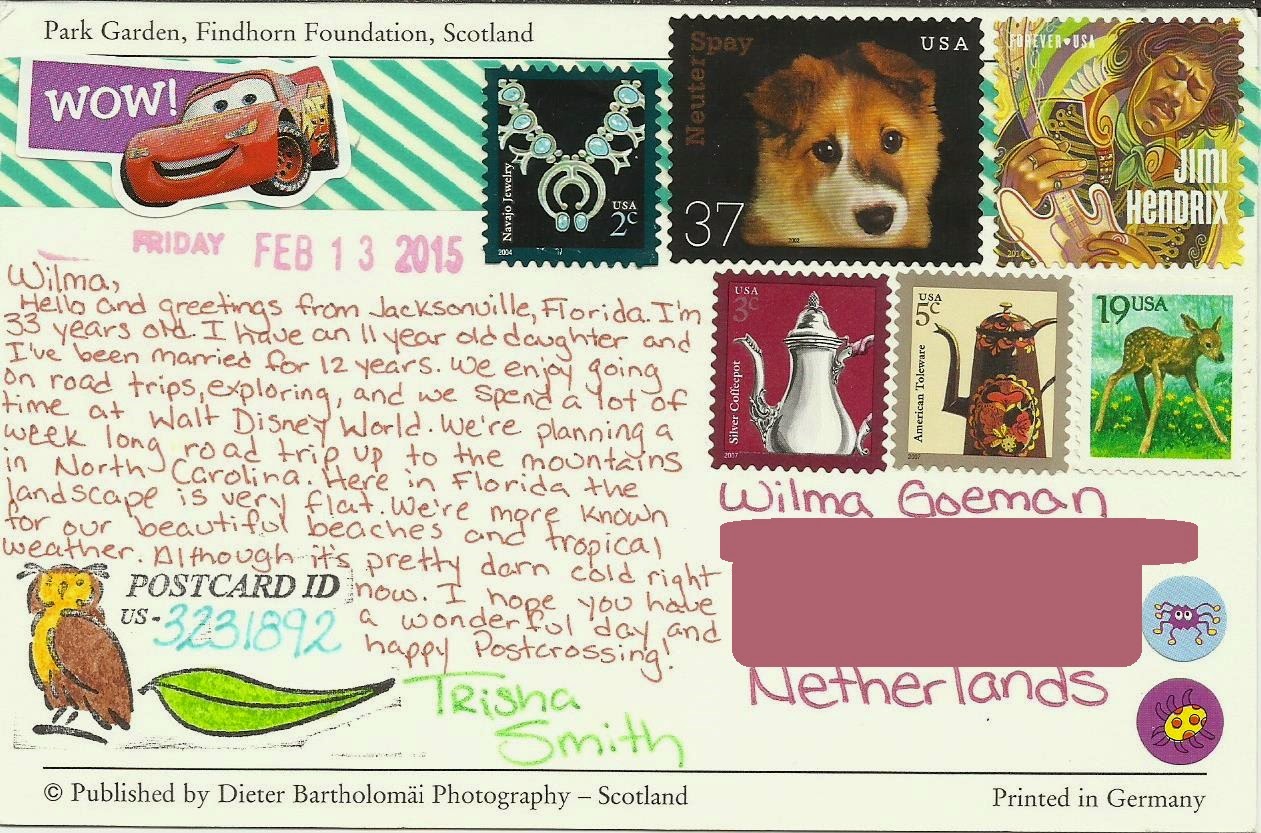 Park Garden, Findhorn Foundation, Scotland
WOW!
Navajo Jewelry
USA
2c
2004
Neuter Spay
USA
37
2002
FOREVER USA
JIMI
HENDRIX
2014
FRIDAY FEB 13 2015
USA
3c
Silver Coffeepot
2007
USA
5c
American Toleware
2007
19 USA
Wilma,
Hello and greetings from Jacksonville, Florida. I'm
33 years old. I have an 11 year old daughter and
I've been married for 12 years. We enjoy going
on road trips, exploring, and we spend a lot of
time at Walt Disney World. We're planning a
week long road trip up to the mountains
in North Carolina. Here in Florida the
landscape is very flat. We're more known
for our beautiful beaches and tropical
weather. Although it's pretty darn cold right
now. I hope you have
a wonderful day and
happy Postcrossing!
POSTCARD ID
US-3231892
Trisha
Smith
Wilma Goeman
Netherlands
© Published by Dieter Bartholomäi Photography – Scotland
Printed in Germany